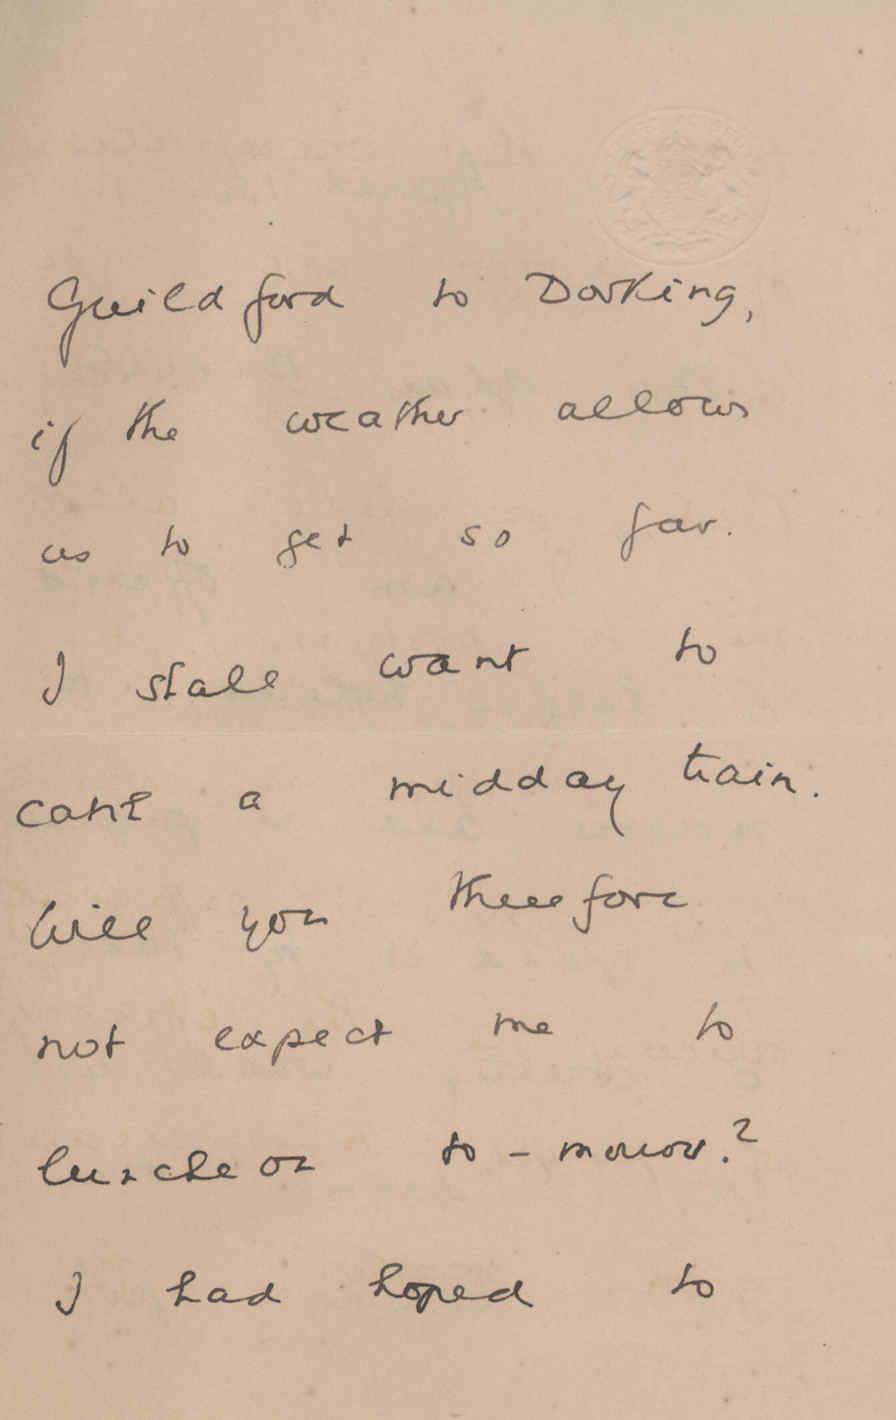 Guildford to Dorking,
if the weather allows
us to get so far.
I shall want to
catch a midday train.
Will you therefore
not expect me to
luncheon to-morrow?
I had hoped to